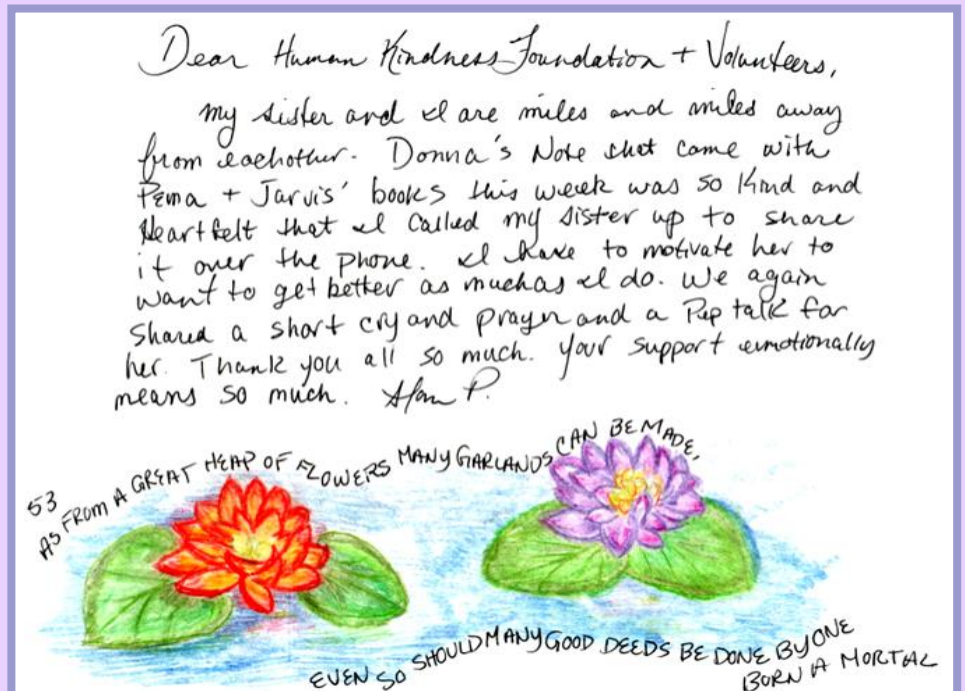 Dear Human Kindness Foundation + Volunteers,
My sister and I are miles and miles away
from eachother. Donna's Note that came with
Pema + Jarvis' books this week was so Kind and
Heartfelt that I called my sister up to share
it over the phone. I have to motivate her to
want to get better as much as I do. We again
Shared a short cry and prayer and a Pep talk for
her. Thank you all so much. Your support emotionally
means so much. Alan P.
53
AS FROM A GREAT HEAP OF FLOWERS MANY GARLANDS CAN BE MADE,
EVEN SO SHOULD MANY GOOD DEEDS BE DONE BY ONE
BORN A MORTAL